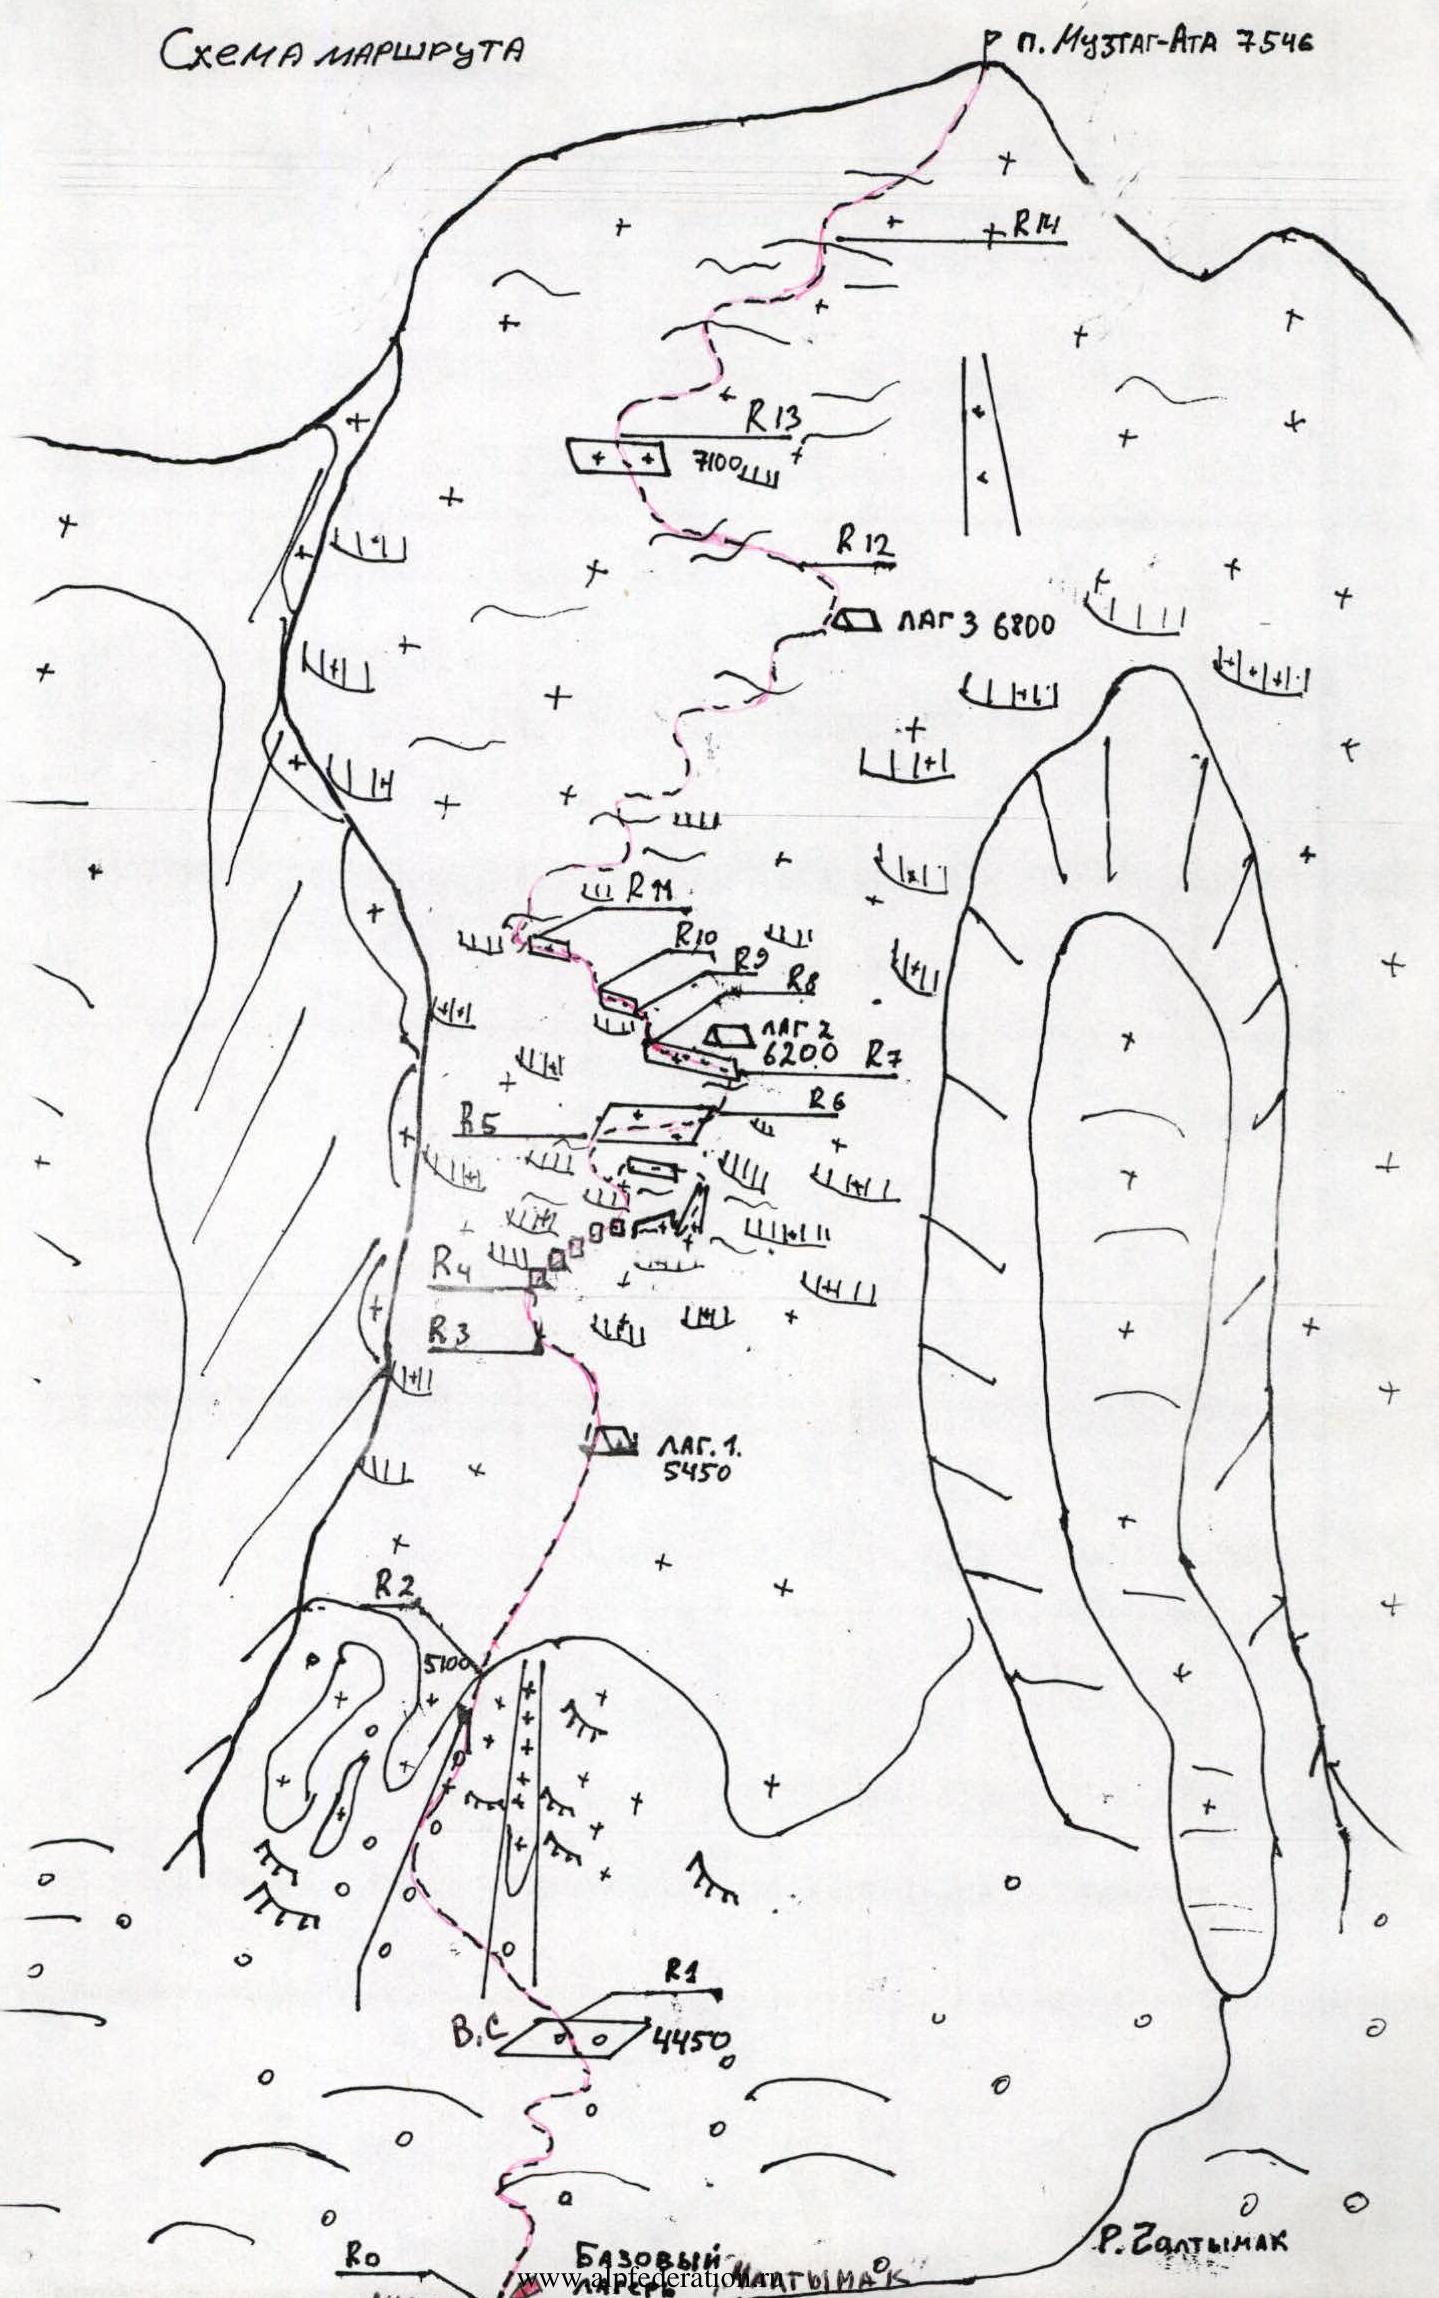 Схема маршрута
п. Музтаг-Ата 7546
R14
R13
7100
R12
ЛАГ 3 6800
R11
R10
R9
R8
ЛАГ 2
6200
R7
R6
R5
R4
R3
ЛАГ. 1.
5450
R2
5100
R1
B.C
4450
Р. Чолтымак
R0
БАЗОВЫЙ
ЛАГЕРЬ
www.alpfederation.ru